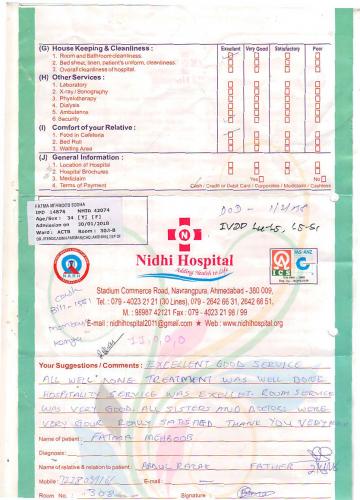 (G) House Keeping & Cleanliness : Excellent Very Good Satisfactory Poor
1. Room and Bathroom cleanliness.
2. Bed sheet, linen, patient's uniform, cleanliness.
3. Overall cleanliness of hospital.
(H) Other Services :
1. Laboratory
2. X-ray / Sonography
3. Physiotherapy
4. Dialysis
5. Ambulance
6. Security
(I) Comfort of your Relative :
1. Food in Cafeteria
2. Bed Roll
3. Waiting Area
(J) General Information :
1. Location of Hospital
2. Hospital Brochures
3. Mediclaim Yes No
4. Terms of Payment Cash / Credit or Debit Card / Corporates / Mediclaim / Cashless
FATMA MEHBOOB SODHA
IPD 14876 NHID 42074
Age/Sex : 34 [Y] [F]
Admission on
30/01/2018
Ward : ACTB Room : 308-B
DOD - 1/2/18
IVDD L4-L5, L5-S1
Nidhi Hospital
Adding Health to Life
NABH
ICS
JAS-ANZ
Stadium Commerce Road, Navrangpura, Ahmedabad - 380 009,
Tel.: 079 - 4023 21 21 (30 Lines), 079 - 2642 66 31, 2642 66 51,
M. : 98987 42121 Fax : 079 - 4023 21 98 / 99
E-mail : nidhihospital2011@gmail.com ★ Web : www.nidhihospital.org
Your Suggestions / Comments : EXCELLENT GOOD SERVICE
ALL WELL DONE TREATMENT WAS WELL DONE
HOSPITALITY SERVICE WAS EXELENT ROOM SERVICE
WAS VERY GOOD ALL SISTERS AND DOCTORS WERE
VERY GOUR REALY SATISFIED THANK YOU VERY
Name of patient : FATMA MEHBOOB
Diagnosis :
Name of relative & relation to patient : ABDUL RAZAK FATHER
Mobile : E-mail :
Room No. 308 Signature